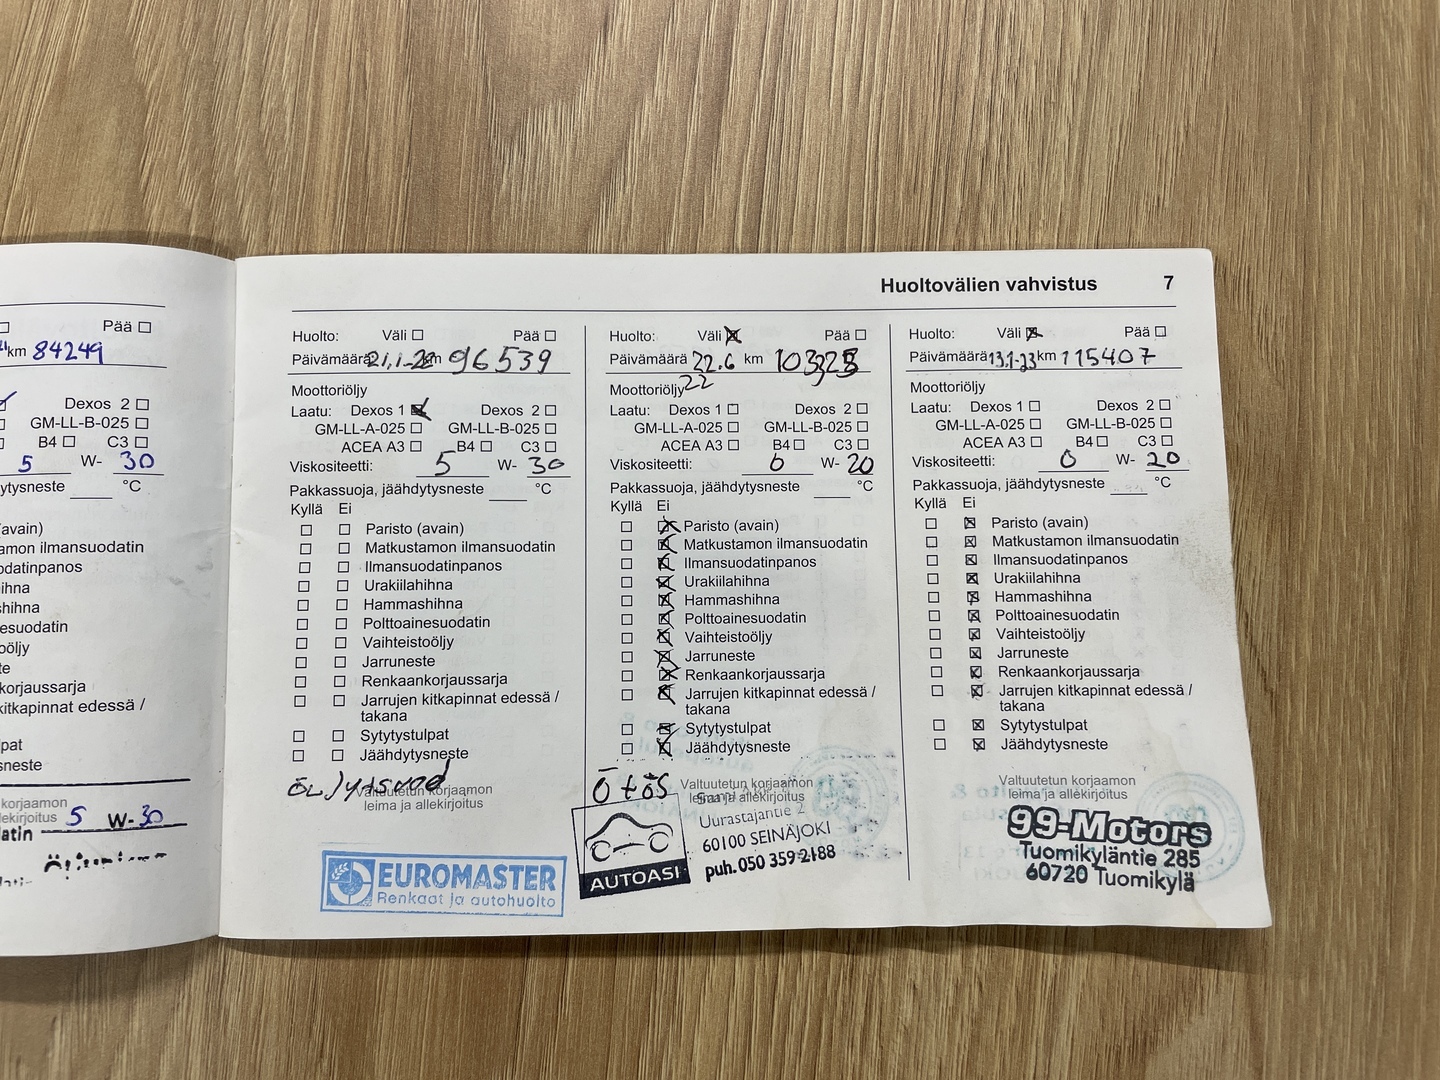 Pää
km 84249
Dexos 2
GM-LL-B-025
B4 C3
5 W- 30
ytysneste °C
(avain)
amon ilmansuodatin
odatinpanos
ihna
shihna
esuodatin
oöljy
te
korjaussarja
kitkapinnat edessä /
pat
sneste
korjaamon
lekirjoitus 5 W-30
latin
Huoltovälien vahvistus 7
Huolto: Väli Pää
Päivämäärä 21.1-22 km 96539
Moottoriöljy
Laatu: Dexos 1 Dexos 2
GM-LL-A-025 GM-LL-B-025
ACEA A3 B4 C3
Viskositeetti: 5 W- 30
Pakkassuoja, jäähdytysneste °C
Kyllä Ei
Paristo (avain)
Matkustamon ilmansuodatin
Ilmansuodatinpanos
Urakiilahihna
Hammashihna
Polttoainesuodatin
Vaihteistoöljy
Jarruneste
Renkaankorjaussarja
Jarrujen kitkapinnat edessä /
takana
Sytytystulpat
Jäähdytysneste
Valtuutetun korjaamon
leima ja allekirjoitus
EUROMASTER
Renkaat ja autohuolto
Huolto: Väli Pää
Päivämäärä 22.6 km
22
Moottoriöljy
Laatu: Dexos 1 Dexos 2
GM-LL-A-025 GM-LL-B-025
ACEA A3 B4 C3
Viskositeetti: 0 W- 20
Pakkassuoja, jäähdytysneste °C
Kyllä Ei
Paristo (avain)
Matkustamon ilmansuodatin
Ilmansuodatinpanos
Urakiilahihna
Hammashihna
Polttoainesuodatin
Vaihteistoöljy
Jarruneste
Renkaankorjaussarja
Jarrujen kitkapinnat edessä /
takana
Sytytystulpat
Jäähdytysneste
Valtuutetun korjaamon
leima ja allekirjoitus
Uurastajantie 2
60100 SEINÄJOKI
puh. 050 359 2188
AUTOASI
Huolto: Väli Pää
Päivämäärä 13.1-23 km 115407
Moottoriöljy
Laatu: Dexos 1 Dexos 2
GM-LL-A-025 GM-LL-B-025
ACEA A3 B4 C3
Viskositeetti: 0 W- 20
Pakkassuoja, jäähdytysneste °C
Kyllä Ei
Paristo (avain)
Matkustamon ilmansuodatin
Ilmansuodatinpanos
Urakiilahihna
Hammashihna
Polttoainesuodatin
Vaihteistoöljy
Jarruneste
Renkaankorjaussarja
Jarrujen kitkapinnat edessä /
takana
Sytytystulpat
Jäähdytysneste
Valtuutetun korjaamon
leima ja allekirjoitus
99-Motors
Tuomikyläntie 285
60720 Tuomikylä